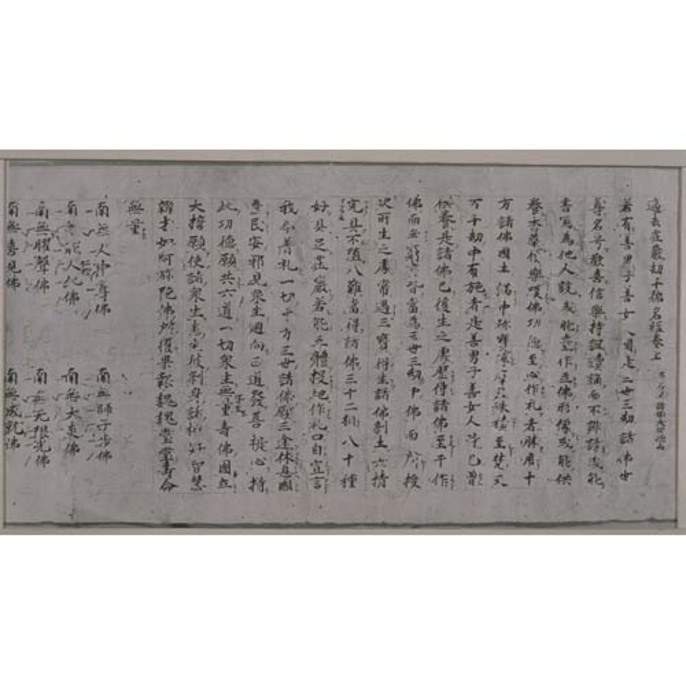 過去莊嚴劫千佛名經卷上
若有善男子善女人聞是三世三劫諸佛世
尊名号歡喜信樂持諷讀誦而不誹謗或能
書寫為他人說或能畫作立佛形像或能供
養香華伎樂嘆佛功德至心作礼者勝用十
方諸佛國土滿中珍寶純摩尼珠積至梵天
百千劫中布施者是善男子善女人等已曾
供養是諸佛已後生之處歷侍諸佛至于作
佛而無窮盡皆當為三世三劫中佛而所授
決所生之處常遇三寶得生諸佛剎土六情
完具不墮八難當得諸佛三十二相八十種
好具足莊嚴若能五體投地作礼口自宣言
我今普礼一切十方三世諸佛願三塗休息國
豐民安邪見眾生迴向正道發菩提心持
此功德願共六道一切眾生無量壽佛國立
大誓願使諸眾生悉生彼剎身諸相好智慧
辯才如阿弥陀佛所獲果報巍巍堂堂壽命
無量
南無人中尊佛 南無師子步佛
南無人化佛 南無大炎佛
南無曜聲佛 南無无限光佛
南無喜見佛 南無成就佛